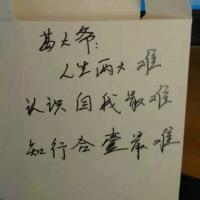 葛大爷:
人生两大难
认识自我最难
知行合壹最难